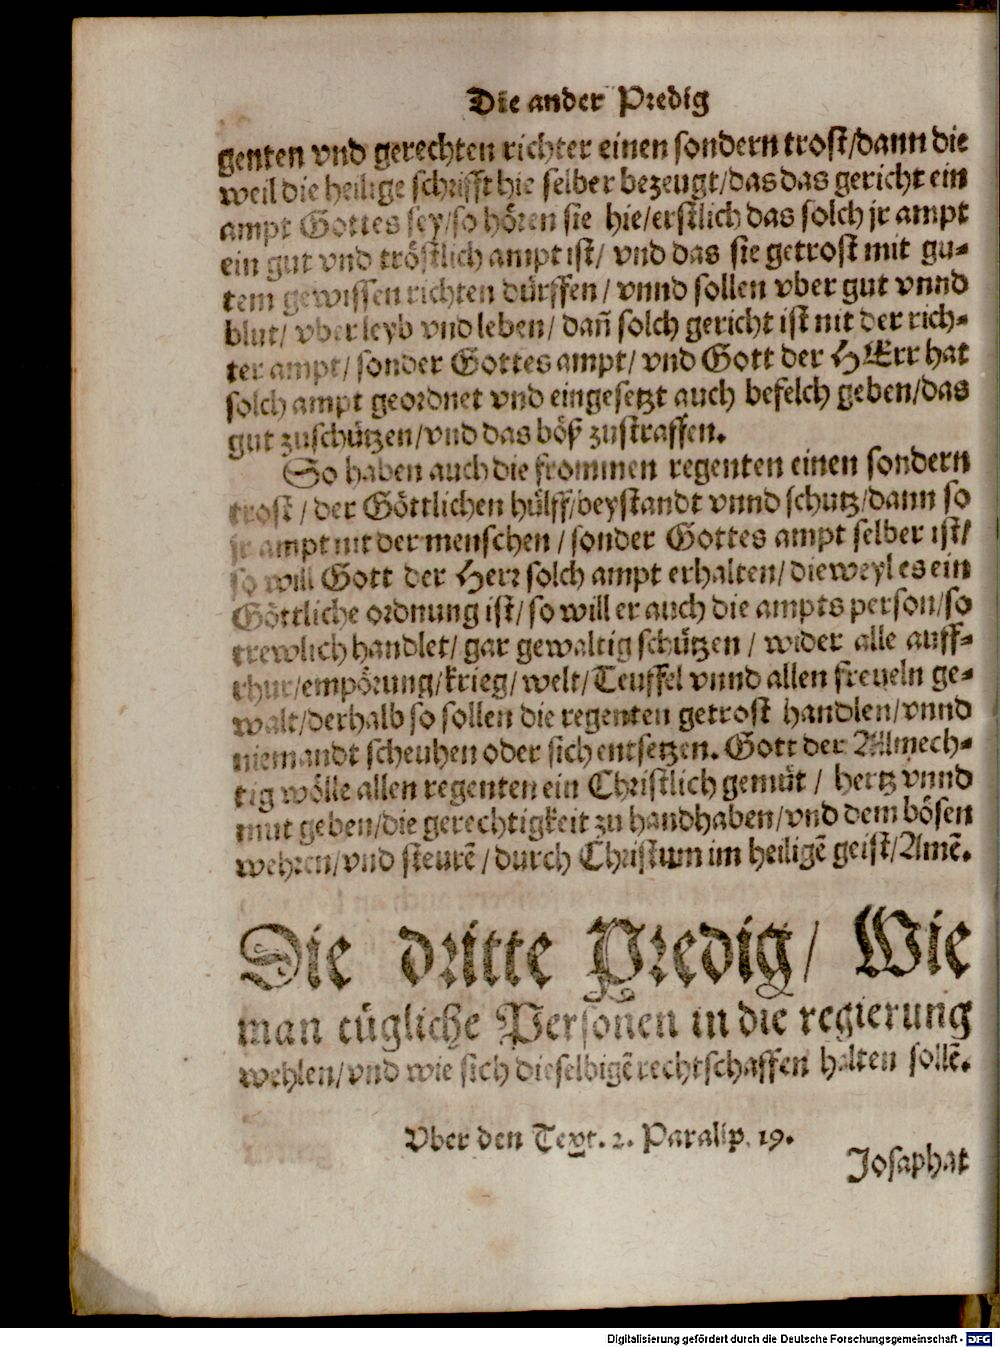 Die ander Predig
genten vnd gerechten richter einen sondern trost/dann die
weil die heilige schrifft hie selber bezeugt/das das gericht ein
ampt Gottes sey/so hören sie hie/erstlich das solch jr ampt
ein gut vnd tröstlich ampt ist/ vnd das sie getrost mit gu-
tem gewissen richten dürffen/ vnnd sollen vber gut vnnd
blut/ vber leyb vnd leben/ dañ solch gericht ist nit der rich-
ter ampt/ sonder Gottes ampt/ vnd Gott der HErr hat
solch ampt geordnet vnd eingesetzt auch befelch geben/das
gut zuschützen/vnd das böß zustraffen.
So haben auch die frommen regenten einen sondern
trost/ der Göttlichen hülff/beystandt vnnd schutz/dann so
jr ampt nit der menschen/ sonder Gottes ampt selber ist/
so will Gott der Herr solch ampt erhalten/ dieweyl es ein
Göttliche ordnung ist/ so will er auch die ampts person/so
trewlich handlet/ gar gewaltig schützen/ wider alle auff-
rhur/empörung/krieg/ welt/ Teuffel vnnd allen freueln ge-
walt/derhalb so sollen die regenten getrost handlen/vnnd
niemandt scheuhen oder sich entsetzen. Gott der Allmech-
tig wölle allen regenten ein Christlich gemüt/ hertz vnnd
mut geben/die gerechtigkeit zu handhaben/vnd dem bösen
wehren/vnd steurẽ/durch Christum im heiligẽ geist/Amẽ.
Die dritte Predig/ Wie
man tügliche Personen in die regierung
wehlen/vnd wie sich dieselbigẽ rechtschaffen halten sollẽ.
Vber den Text. 2. Paralip. 19.
Josaphat
Digitalisierung gefördert durch die Deutsche Forschungsgemeinschaft - DFG